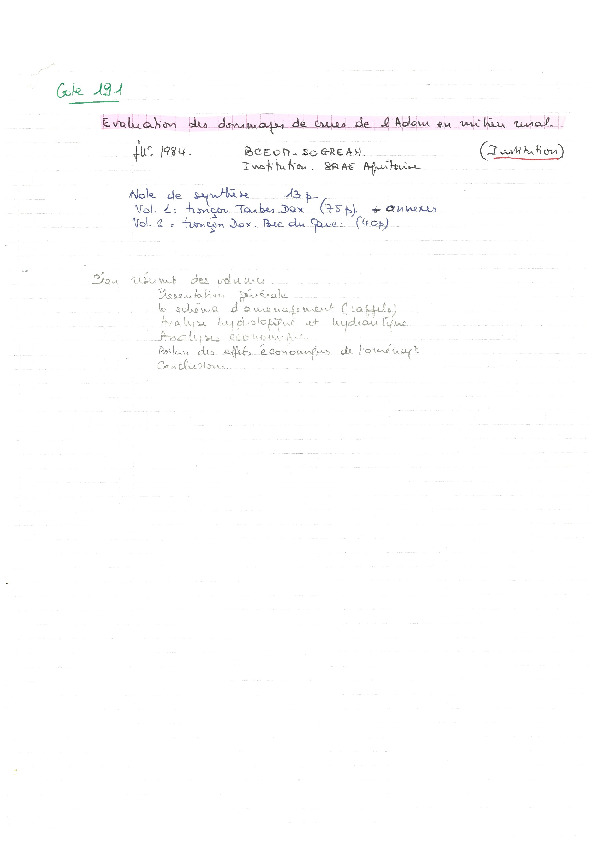 Cote 191
Evaluation des dommages de crues de l'Adour en milieu rural.
1984. BCEOM-SOGREAH. (Institution)
Institution. SRAE Aquitaine
Note de synthèse 13 p.
Vol. 1: tronçon Tarbes Dax (75p) + annexes
Vol. 2: tronçon Dax. Bec du Gave: (40p)
résumé des volumes
Présentation générale
le schéma d'aménagement (rappels)
Analyse hydrologique et hydraulique
Analyse économique
des effets économiques de l'aménagt
Conclusion